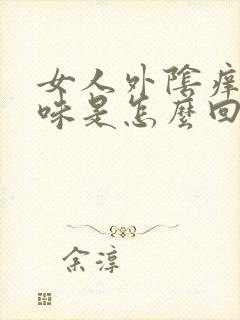 女人外陰癢
味是怎麼回
余淳